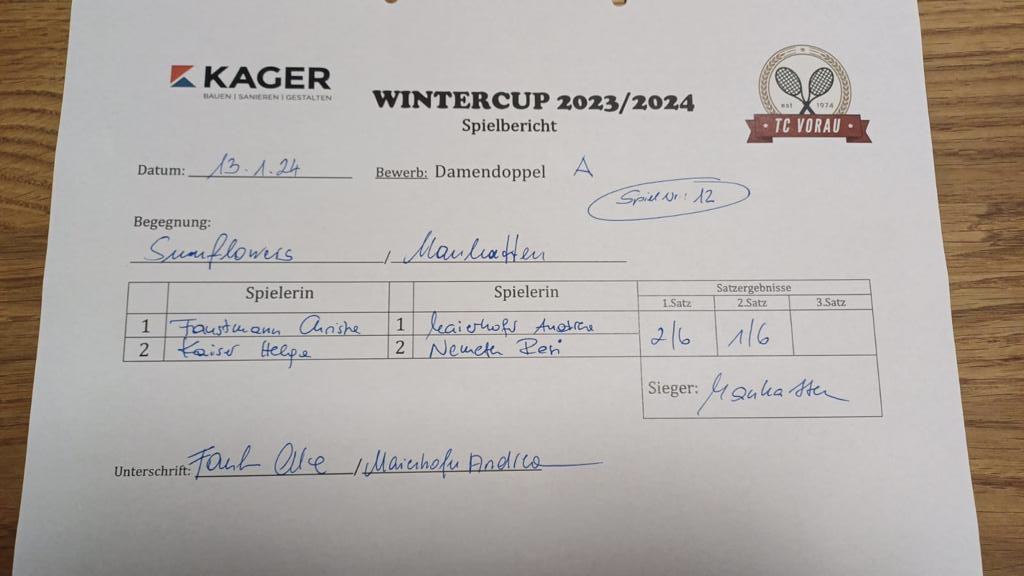 KAGER
BAUEN | SANIEREN | GESTALTEN
WINTERCUP 2023/2024
Spielbericht
est 1974
TC VORAU
Datum: 13.1.24 Bewerb: Damendoppel A
Spiel Nr: 12
Begegnung:
Sunflowers / Manhatten
Spielerin Spielerin Satzergebnisse
1.Satz 2.Satz 3.Satz
1 Faustmann Christa 1 Maierhofer Andrea 2/6 1/6
2 Kaiser Helga 2 Nemeth Resi
Sieger: Manhatten
Unterschrift: / Maierhofer Andrea